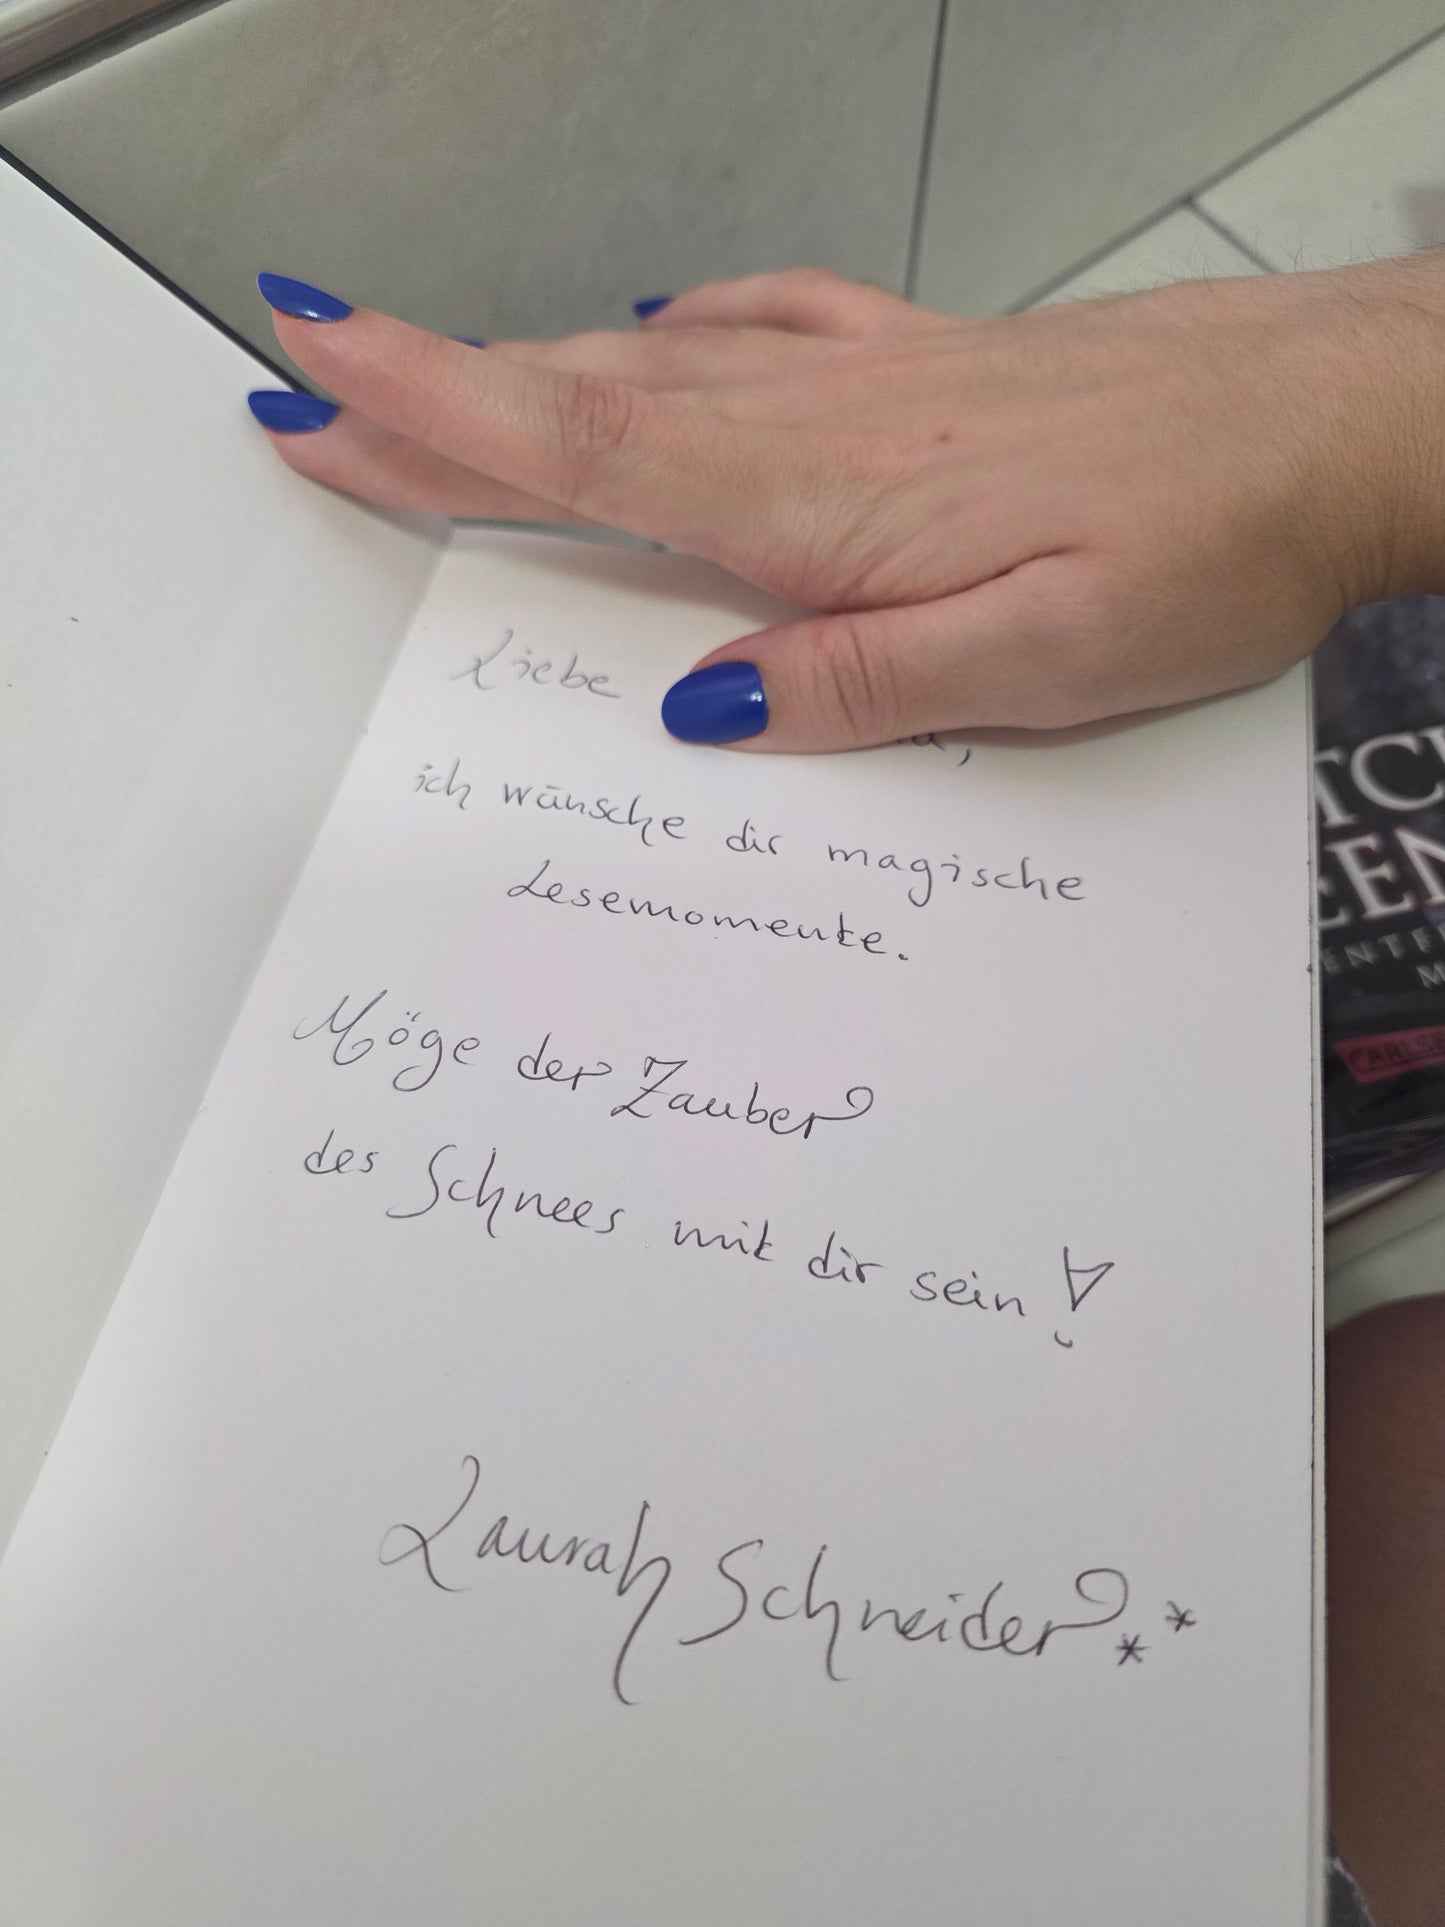 Liebe
ich wünsche dir magische
Lesemomente.
Möge der Zauber
des Schnees mit dir sein!
Laurah Schneider